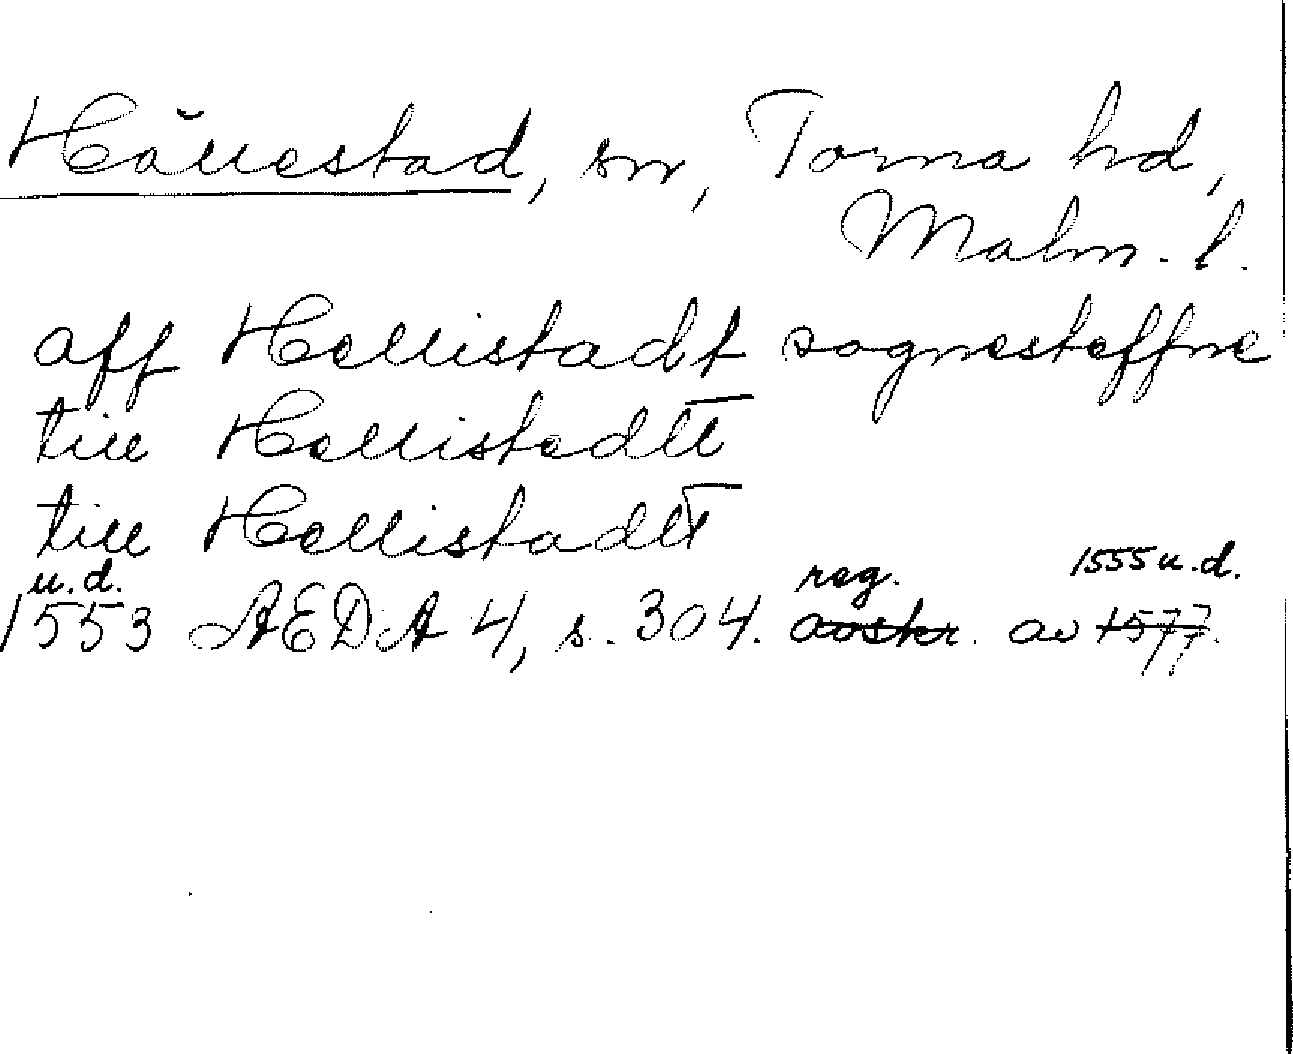 Hällestad, sn, Torna hd,
Malm. l.
aff Hellistadt sognesteffne
till Hellistedtt
till Hellistadtt
u.d. reg. 1555 u.d.
1553 AEDA 4, s. 304. avskr. av 1577.